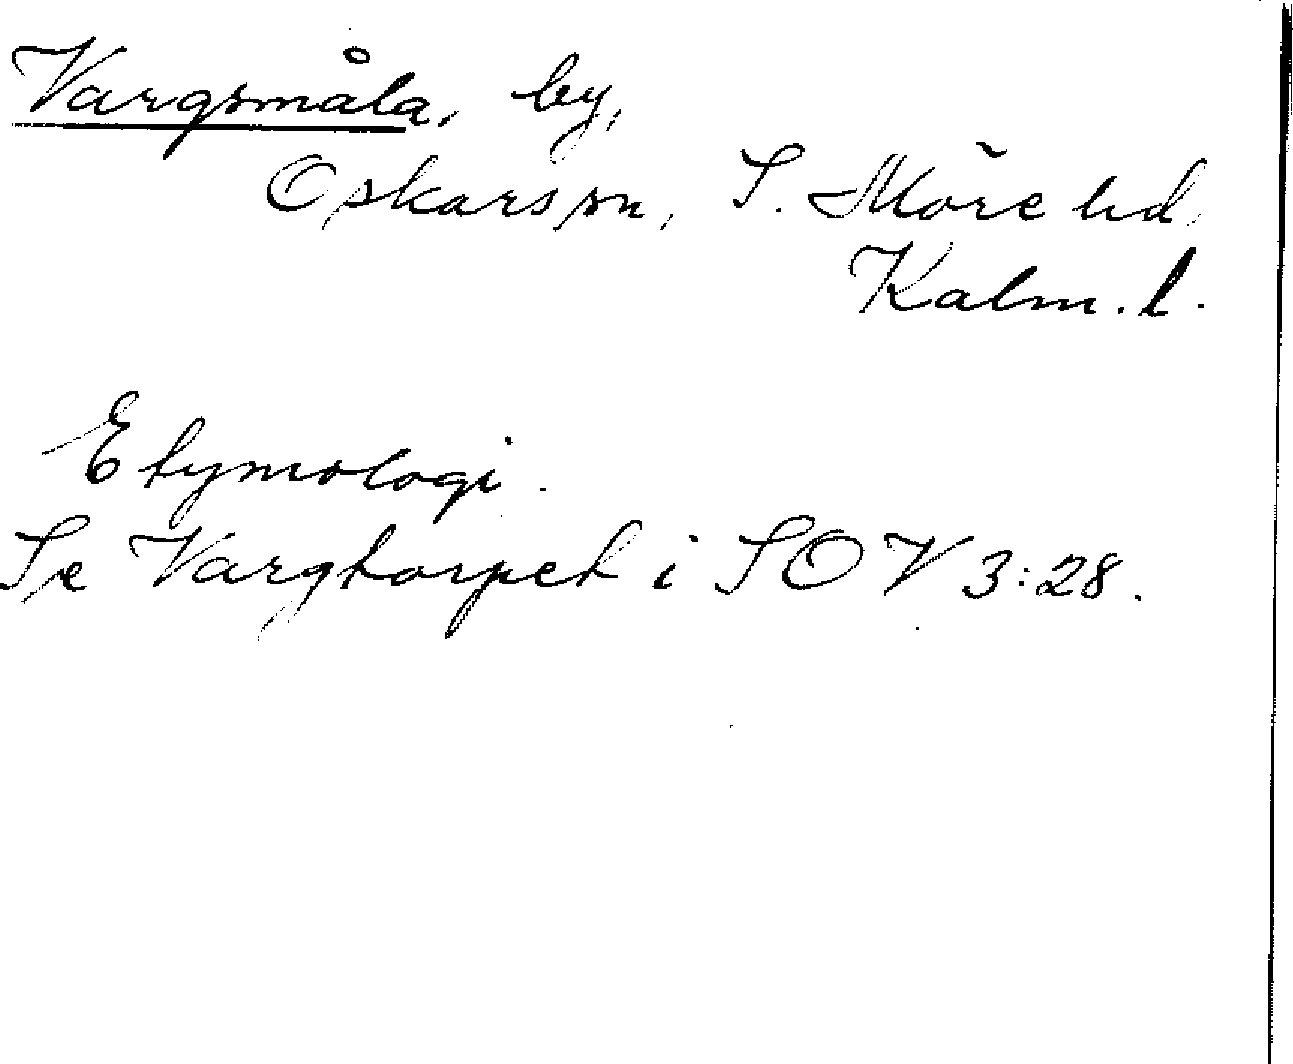 Vargsmåla, by,
Oskars sn, S. Möre hd,
Kalm. l.
Etymologi.
Se Vargtorpet i SOV 3:28.